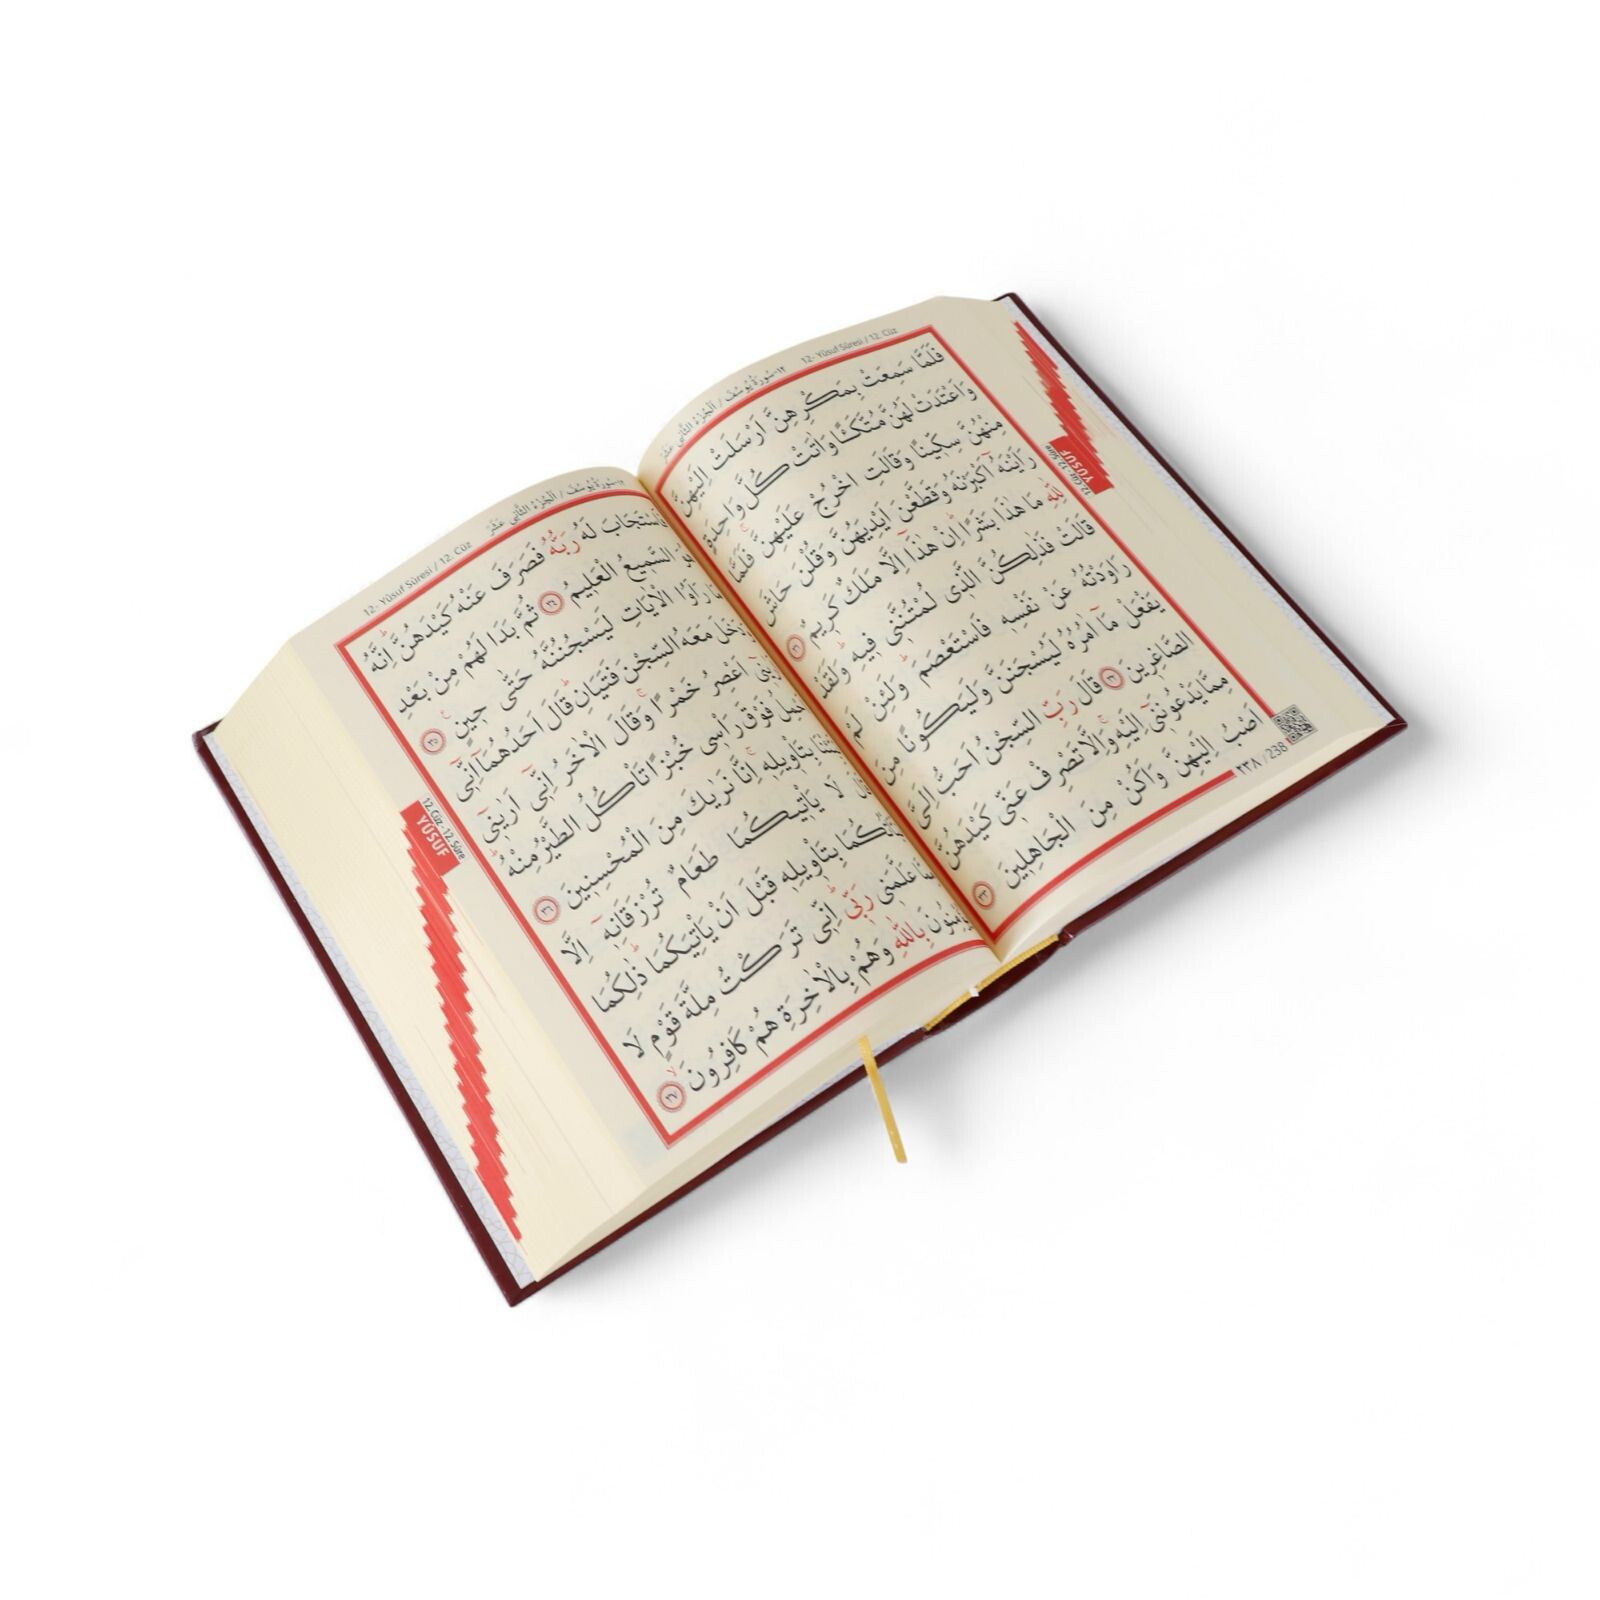 ١٢-سُورَةُ يُوسُفَ / اَلْجُزْءُ الثَّانِي عَشَرَ 12- Yûsuf Sûresi / 12. Cüz
فَلَمَّا سَمِعَتْ بِمَكْرِهِنَّ اَرْسَلَتْ اِلَيْهِنَّ
وَاَعْتَدَتْ لَهُنَّ مُتَّكَـًٔا وَاٰتَتْ كُلَّ وَاحِدَةٍ
مِنْهُنَّ سِكّ۪ينًا وَقَالَتِ اخْرُجْ عَلَيْهِنَّۚ فَلَمَّا
رَاَيْنَهُٓ اَكْبَرْنَهُ وَقَطَّعْنَ اَيْدِيَهُنَّ وَقُلْنَ حَاشَ
لِلّٰهِ مَا هٰذَا بَشَرًاۜ اِنْ هٰذَٓا اِلَّا مَلَكٌ كَر۪يمٌ ٣١
قَالَتْ فَذٰلِكُنَّ الَّذ۪ي لُمْتُنَّن۪ي ف۪يهِۜ وَلَقَدْ
رَاوَدْتُهُ عَنْ نَفْسِه۪ فَاسْتَعْصَمَۜ وَلَئِنْ لَمْ
يَفْعَلْ مَٓا اٰمُرُهُ لَيُسْجَنَنَّ وَلَيَكُونًا مِنَ
الصَّاغِر۪ينَ ٣٢ قَالَ رَبِّ السِّجْنُ اَحَبُّ اِلَيَّ
مِمَّا يَدْعُونَن۪ٓي اِلَيْهِۚ وَاِلَّا تَصْرِفْ عَنّ۪ي كَيْدَهُنَّ
اَصْبُ اِلَيْهِنَّ وَاَكُنْ مِنَ الْجَاهِل۪ينَ ٣٣
٢٣٨ / 238
12.Cüz-12.Sûre
YÛSUF
12- Yûsuf Sûresi / 12. Cüz ١٢-سُورَةُ يُوسُفَ / اَلْجُزْءُ الثَّانِي عَشَرَ
فَاسْتَجَابَ لَهُ رَبُّهُ فَصَرَفَ عَنْهُ كَيْدَهُنَّۜ اِنَّهُ
هُوَ السَّم۪يعُ الْعَل۪يمُ ٣٤ ثُمَّ بَدَا لَهُمْ مِنْ بَعْدِ
مَا رَاَوُا الْاٰيَاتِ لَيَسْجُنُنَّهُ حَتّٰى ح۪ينٍۚ ٣٥
وَدَخَلَ مَعَهُ السِّجْنَ فَتَيَانِۜ قَالَ اَحَدُهُمَٓا اِنّ۪ٓي
اَرٰين۪ٓي اَعْصِرُ خَمْرًاۚ وَقَالَ الْاٰخَرُ اِنّ۪ٓي اَرٰين۪ٓي
اَحْمِلُ فَوْقَ رَأْس۪ي خُبْزًا تَأْكُلُ الطَّيْرُ مِنْهُۜ
نَبِّئْنَا بِتَأْو۪يلِه۪ۚ اِنَّا نَرٰيكَ مِنَ الْمُحْسِن۪ينَ ٣٦
قَالَ لَا يَأْت۪يكُمَا طَعَامٌ تُرْزَقَانِه۪ٓ اِلَّا
نَبَّأْتُكُمَا بِتَأْو۪يلِه۪ قَبْلَ اَنْ يَأْتِيَكُمَاۜ ذٰلِكُمَا
مِمَّا عَلَّمَن۪ي رَبّ۪يۜ اِنّ۪ي تَرَكْتُ مِلَّةَ قَوْمٍ لَا
يُؤْمِنُونَ بِاللّٰهِ وَهُمْ بِالْاٰخِرَةِ هُمْ كَافِرُونَۙ ٣٧
12.Cüz-12.Sûre
YÛSUF